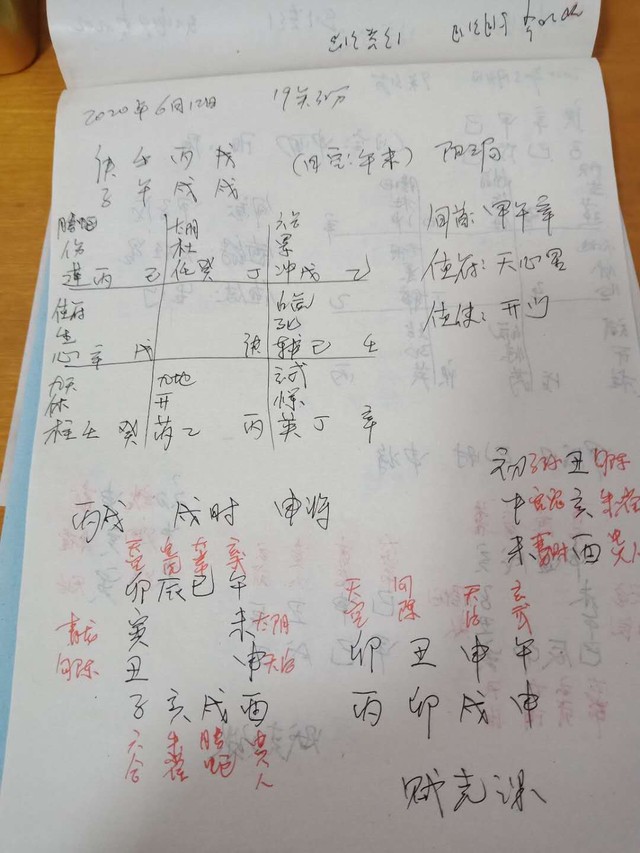 2020年6月12日 19点3分
庚 壬 丙 戌 (旬空:午未) 阳三局
子 午 戌 戌
旬首:甲午辛
值符:天心星
值使:开门
螣蛇 太阴 六合
伤 杜 景
蓬 丙 己 任 癸 丁 冲 戊 乙
值符 白虎
生 死
心 辛 戊 庚 辅 己 壬
九天 九地 玄武
休 开 惊
柱 壬 癸 芮 乙 丙 英 丁 辛
丙戌 戌时 申将
初 丑 勾陈
中 亥 朱雀
末 酉 贵人
天空 白虎 太常 玄武
卯 辰 巳 午
青龙 寅 未 太阴
勾陈 丑 申 天后
子 亥 戌 酉
六合 朱雀 螣蛇 贵人
天空 勾陈 天后 玄武
卯 丑 申 午
丙 卯 戌 申
贼克课